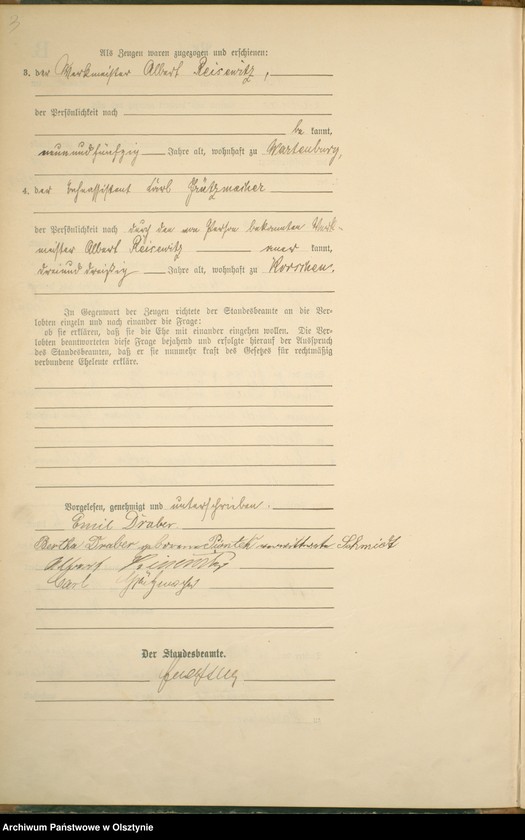 3
Als Zeugen waren zugezogen und erschienen:
3. der Werkmeister Albert Reisewitz,
der Persönlichkeit nach
be kannt,
neunundfünfzig Jahre alt, wohnhaft zu Wartenburg,
4. der Bahnassistent Carl Grützmacher
der Persönlichkeit nach durch den von Person bekannten Werk-
meister Albert Reisewitz aner kannt,
dreiunddreißig Jahre alt, wohnhaft zu Korschen.
In Gegenwart der Zeugen richtete der Standesbeamte an die Ver-
lobten einzeln und nach einander die Frage:
ob sie erklären, daß sie die Ehe mit einander eingehen wollen. Die Ver-
lobten beantworteten diese Frage bejahend und erfolgte hierauf der Ausspruch
des Standesbeamten, daß er sie nunmehr kraft des Gesetzes für rechtmäßig
verbundene Eheleute erkläre.
Vorgelesen, genehmigt und unterschrieben.
Emil Draber
Bertha Draber geborene Piontek verwittwete Schmidt
Albert Reisewitz
Carl Grützmacher
Der Standesbeamte.
Archiwum Państwowe w Olsztynie